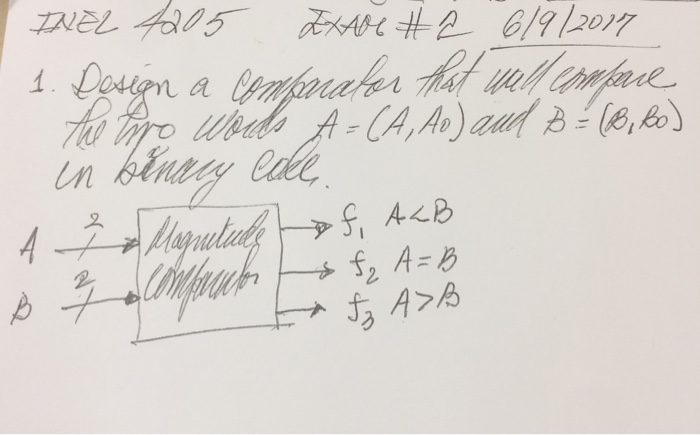 INEL 4205 Exam #2 6/9/2017
1. Design a comparator that will compare
the two words A = (A1 A0) and B = (B1 B0)
in binary code.
2 f1 A<B
A Magnitude
2 f2 A=B
B comparator
f3 A>B